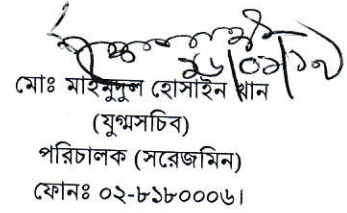 ২৬/০২/১৭
মোঃ মাইনুদুল হোসাইন খান
(যুগ্মসচিব)
পরিচালক (সরেজমিন)
ফোনঃ ০২-৮১৮০০০৬।